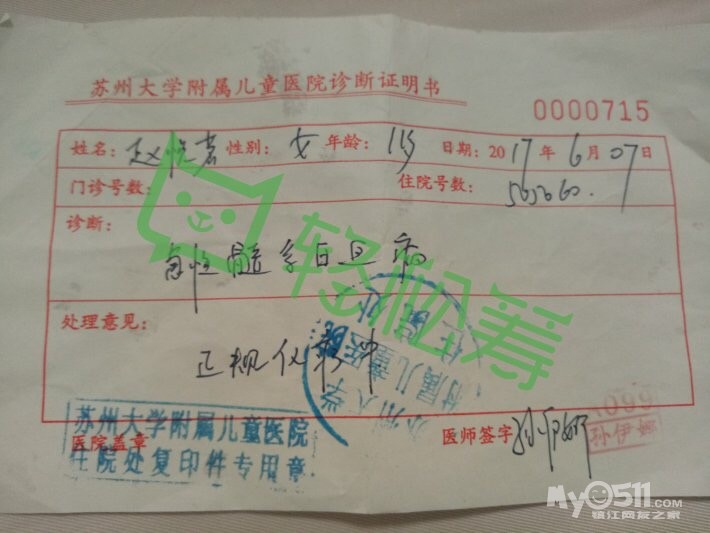 苏州大学附属儿童医院诊断证明书
0000715
姓名：赵悦 性别：女 年龄：1岁 日期：2017年6月07日
门诊号数： 住院号数：
诊断：
急性髓系白血病
轻松筹
处理意见：
正规化疗中
苏州大学附属儿童医院
住院处复印件专用章
医院盖章
医师签字
孙伊娜
My0511.com
镇江网友之家